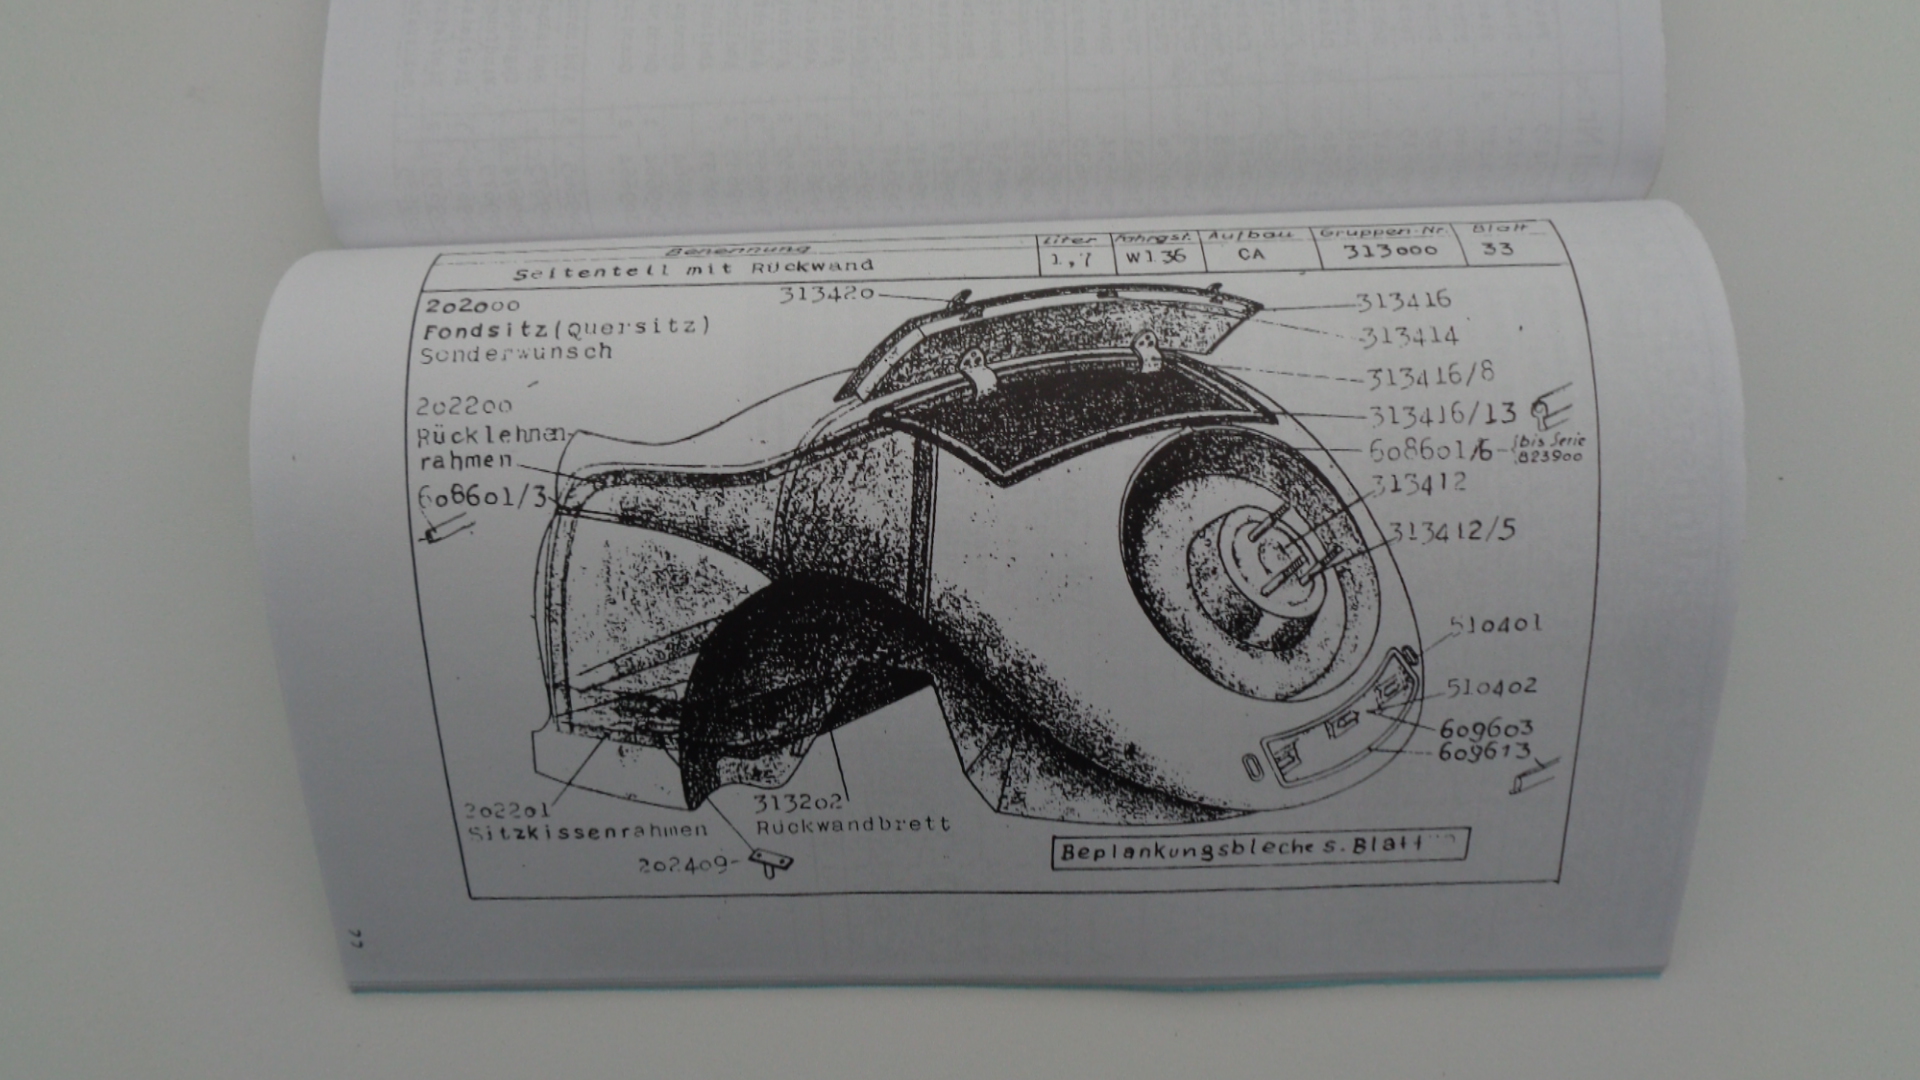 Benennung
Seitenteil mit Rückwand
Liter
1,7
Fahrgst.
W136
Aufbau
CA
Gruppen-Nr.
313000
Blatt
33
202000
Fondsitz(Quersitz)
Sonderwunsch
202200
Rücklehnen-
rahmen
608601/3
313420
313416
313414
313416/8
313416/13
608601/6 - bis Serie
823900
313412
313412/5
510401
510402
609603
609613
202201
Sitzkissenrahmen
313202
Rückwandbrett
202409-
Beplankungsbleche s. Blatt
77